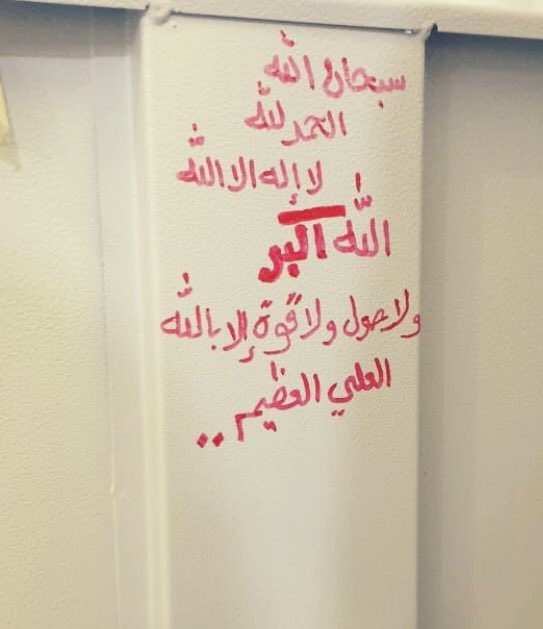 سبحان الله
الحمد لله
لا إله الا الله
الله اكبر
ولا حول ولا قوة إلا بالله
العلي العظيم..